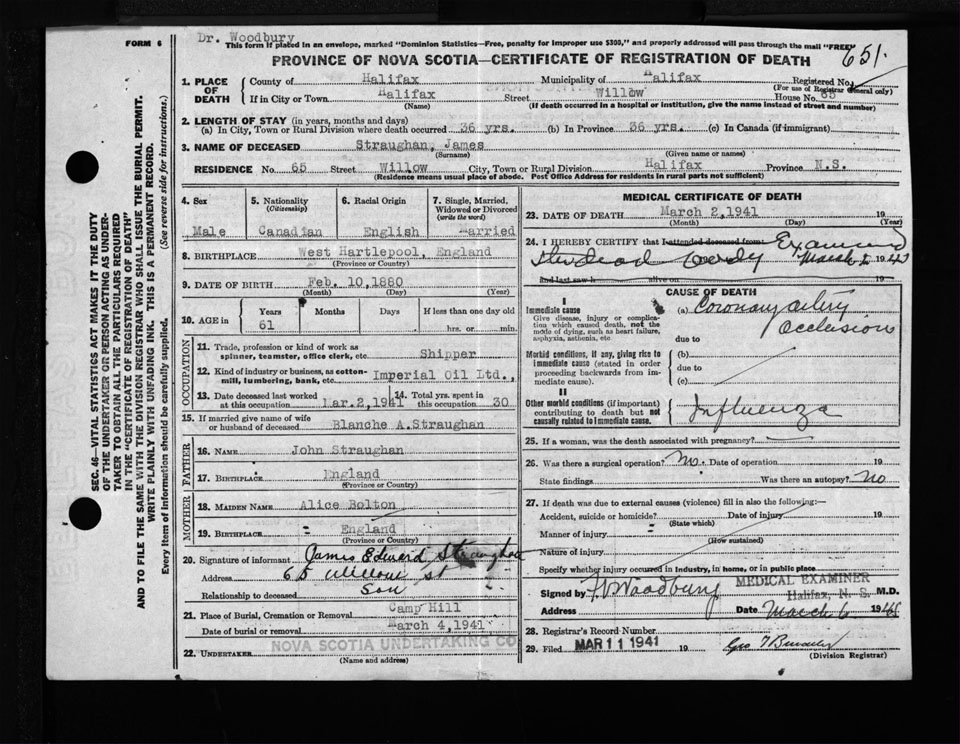 Dr. Woodbury
FORM 6
This form if placed in an envelope, marked "Dominion Statistics—Free, penalty for improper use $300," and properly addressed will pass through the mail "FREE"
651.
PROVINCE OF NOVA SCOTIA—CERTIFICATE OF REGISTRATION OF DEATH
1. PLACE OF DEATH
County of Halifax Municipality of Halifax Registered No.
(For use of Registrar General only)
If in City or Town Halifax Street Willow House No. 65
(Name) (If death occurred in a hospital or institution, give the name instead of street and number)
2. LENGTH OF STAY (in years, months and days)
(a) In City, Town or Rural Division where death occurred 36 yrs. (b) In Province 36 yrs. (c) In Canada (if immigrant)
3. NAME OF DECEASED Straughan, James
(Surname) (Given name or names)
RESIDENCE No. 65 Street Willow City, Town or Rural Division Halifax Province N.S.
(Residence means usual place of abode. Post Office Address for residents in rural parts not sufficient)
4. Sex
Male
5. Nationality
(Citizenship)
Canadian
6. Racial Origin
English
7. Single, Married, Widowed or Divorced
(write the word)
Married
8. BIRTHPLACE West Hartlepool, England
(Province or Country)
9. DATE OF BIRTH Feb. 10,1880
(Month) (Day) (Year)
10. AGE in Years Months Days If less than one day old
61 hrs. or min.
OCCUPATION
11. Trade, profession or kind of work as
spinner, teamster, office clerk, etc. Shipper
12. Kind of industry or business, as cotton-
mill, lumbering, bank, etc. Imperial Oil Ltd.,
13. Date deceased last worked 14. Total yrs. spent in
at this occupation Mar.2,1941 this occupation 30
15. If married give name of wife
or husband of deceased Blanche A.Straughan
FATHER
16. NAME John Straughan
17. BIRTHPLACE England
(Province or Country)
MOTHER
18. MAIDEN NAME Alice Bolton
19. BIRTHPLACE England
(Province or Country)
20. Signature of informant James Edward Straughan
Address 65 Willow St
Relationship to deceased Son
21. Place of Burial, Cremation or Removal Camp Hill
Date of burial or removal March 4,1941
22. UNDERTAKER NOVA SCOTIA UNDERTAKING CO
(Name and address)
MEDICAL CERTIFICATE OF DEATH
23. DATE OF DEATH March 2,1941 19
(Month) (Day) (Year)
24. I HEREBY CERTIFY that I attended deceased from Examined
the dead body March 19
and last saw h alive on 19
CAUSE OF DEATH
I
Immediate cause (a) Coronary artery
Give disease, injury or complica- Occlusion
tion which caused death, not the
mode of dying, such as heart failure,
asphyxia, asthenia, etc. due to
Morbid conditions, if any, giving rise to (b)
immediate cause (stated in order due to
proceeding backwards from im- (c)
mediate cause).
II
Other morbid conditions (if important) Influenza
contributing to death but not
causally related to immediate cause.
25. If a woman, was the death associated with pregnancy?
26. Was there a surgical operation? No. Date of operation 19
State findings Was there an autopsy? No
27. If death was due to external causes (violence) fill in also the following:—
Accident, suicide or homicide? Date of injury 19
(State which)
Manner of injury
(How sustained)
Nature of injury
Specify whether injury occurred in industry, in home, or in public place
MEDICAL EXAMINER
Signed by Woodbury Halifax, N. S. M.D.
Address Date March 6 1941
28. Registrar's Record Number
29. Filed MAR 11 1941 19 Geo
(Division Registrar)
SEC. 46—VITAL STATISTICS ACT MAKES IT THE DUTY
OF THE UNDERTAKER OR PERSON ACTING AS UNDER-
TAKER TO OBTAIN ALL THE PARTICULARS REQUIRED
IN THE "CERTIFICATE OF REGISTRATION OF DEATH"
AND TO FILE THE SAME WITH THE DIVISION REGISTRAR WHO SHALL ISSUE THE BURIAL PERMIT.
WRITE PLAINLY WITH UNFADING INK. THIS IS A PERMANENT RECORD.
Every item of information should be carefully supplied. (See reverse side for instructions.)